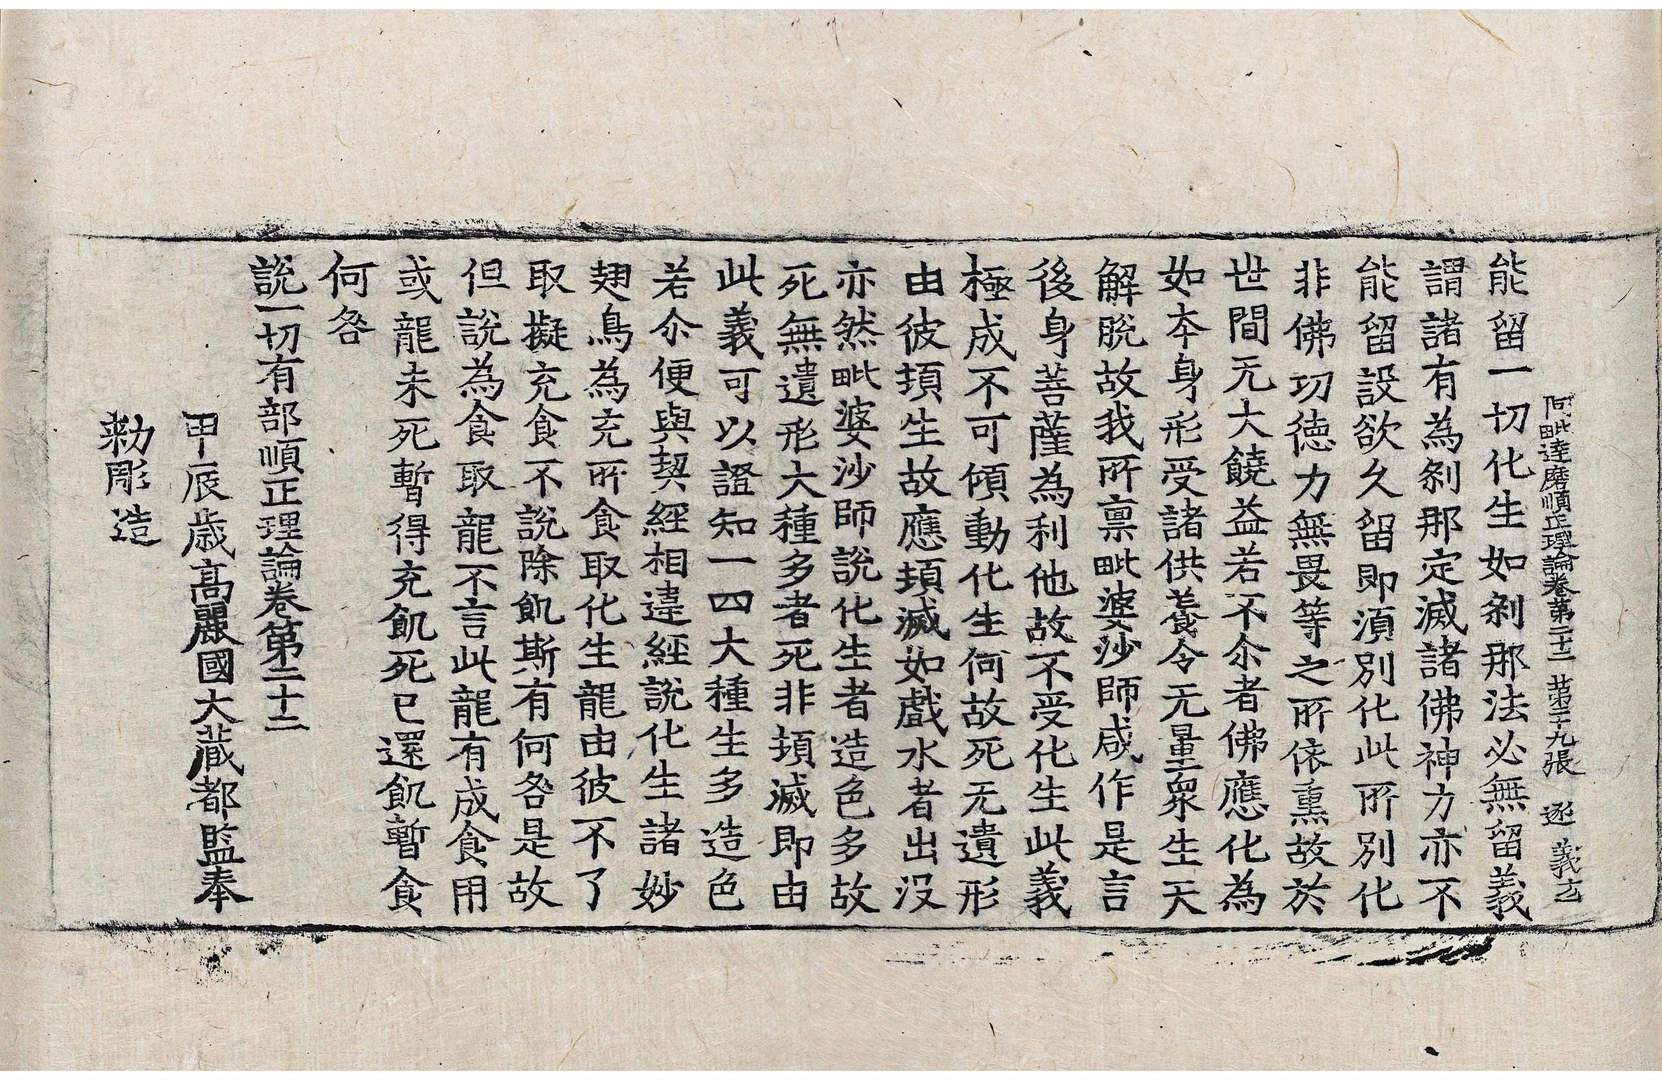 阿毗達磨順正理論卷第二十二 第二十九張 逐 義玄
能留一切化生如刹那法必無留義
謂諸有為刹那定滅諸佛神力亦不
能留設欲久留即須別化此所別化
非佛功德力無畏等之所依熏故於
世間无大饒益若不尒者佛應化為
如本身形受諸供養令无量衆生天
解脫故我所稟毗婆沙師咸作是言
後身菩薩為利他故不受化生此義
極成不可傾動化生何故死无遺形
由彼頓生故應頓滅如戲水者出沒
亦然毗婆沙師說化生者造色多故
死無遺形大種多者死非頓滅即由
此義可以證知一四大種生多造色
若尒便與契經相違經說化生諸妙
翅鳥為充所食取化生龍由彼不了
取擬充食不說除飢斯有何咎是故
但說為食取龍不言此龍有成食用
或龍未死暫得充飢死已還飢暫食
何咎
說一切有部順正理論卷第二十二
甲辰歲高麗國大藏都監奉
勅彫造